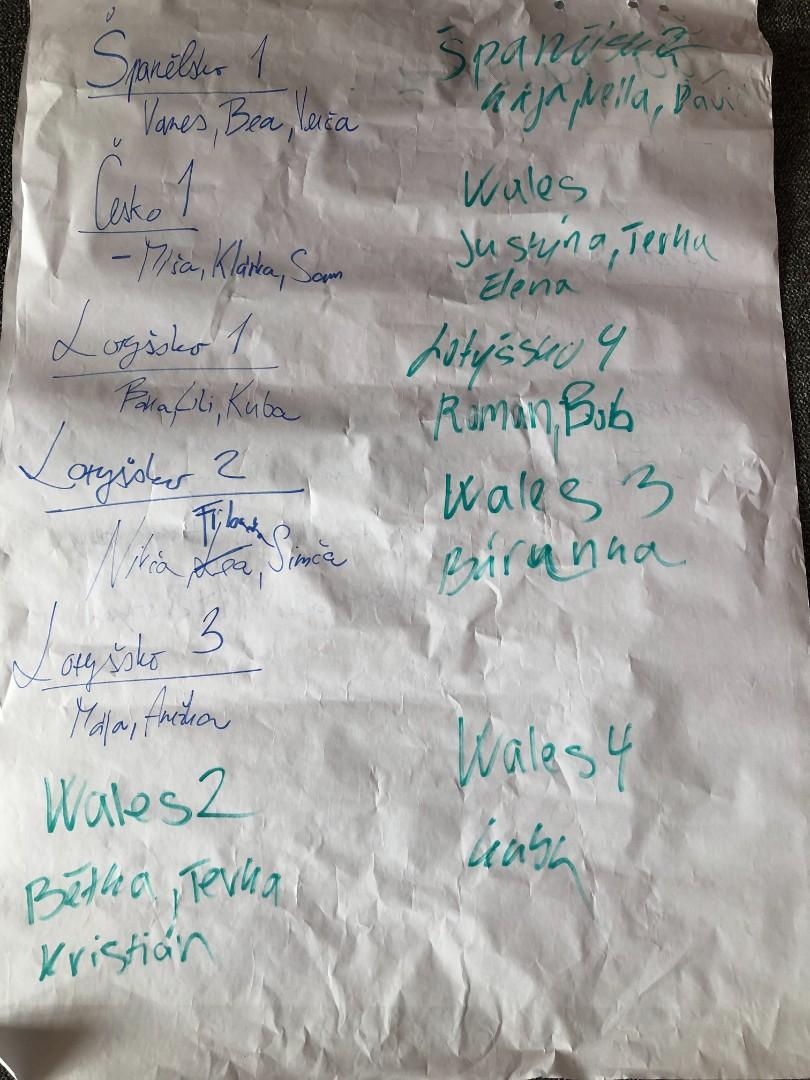 Španělsko 1
Vanes, Bea, Verča
Česko 1
- Míša, Klárka, Sam
Lotyšsko 1
Fili, Kuba
Lotyšsko 2
Nikča, Simča
Lotyšsko 3
Mája, Anežka
Wales 2
Bětka, Terka
Kristián
Španělsko 2
Kája, Neila, David
Wales
Justýna, Terka
Elena
Lotyšsko 4
Roman, Bob
Wales 3
Bárunka
Wales 4